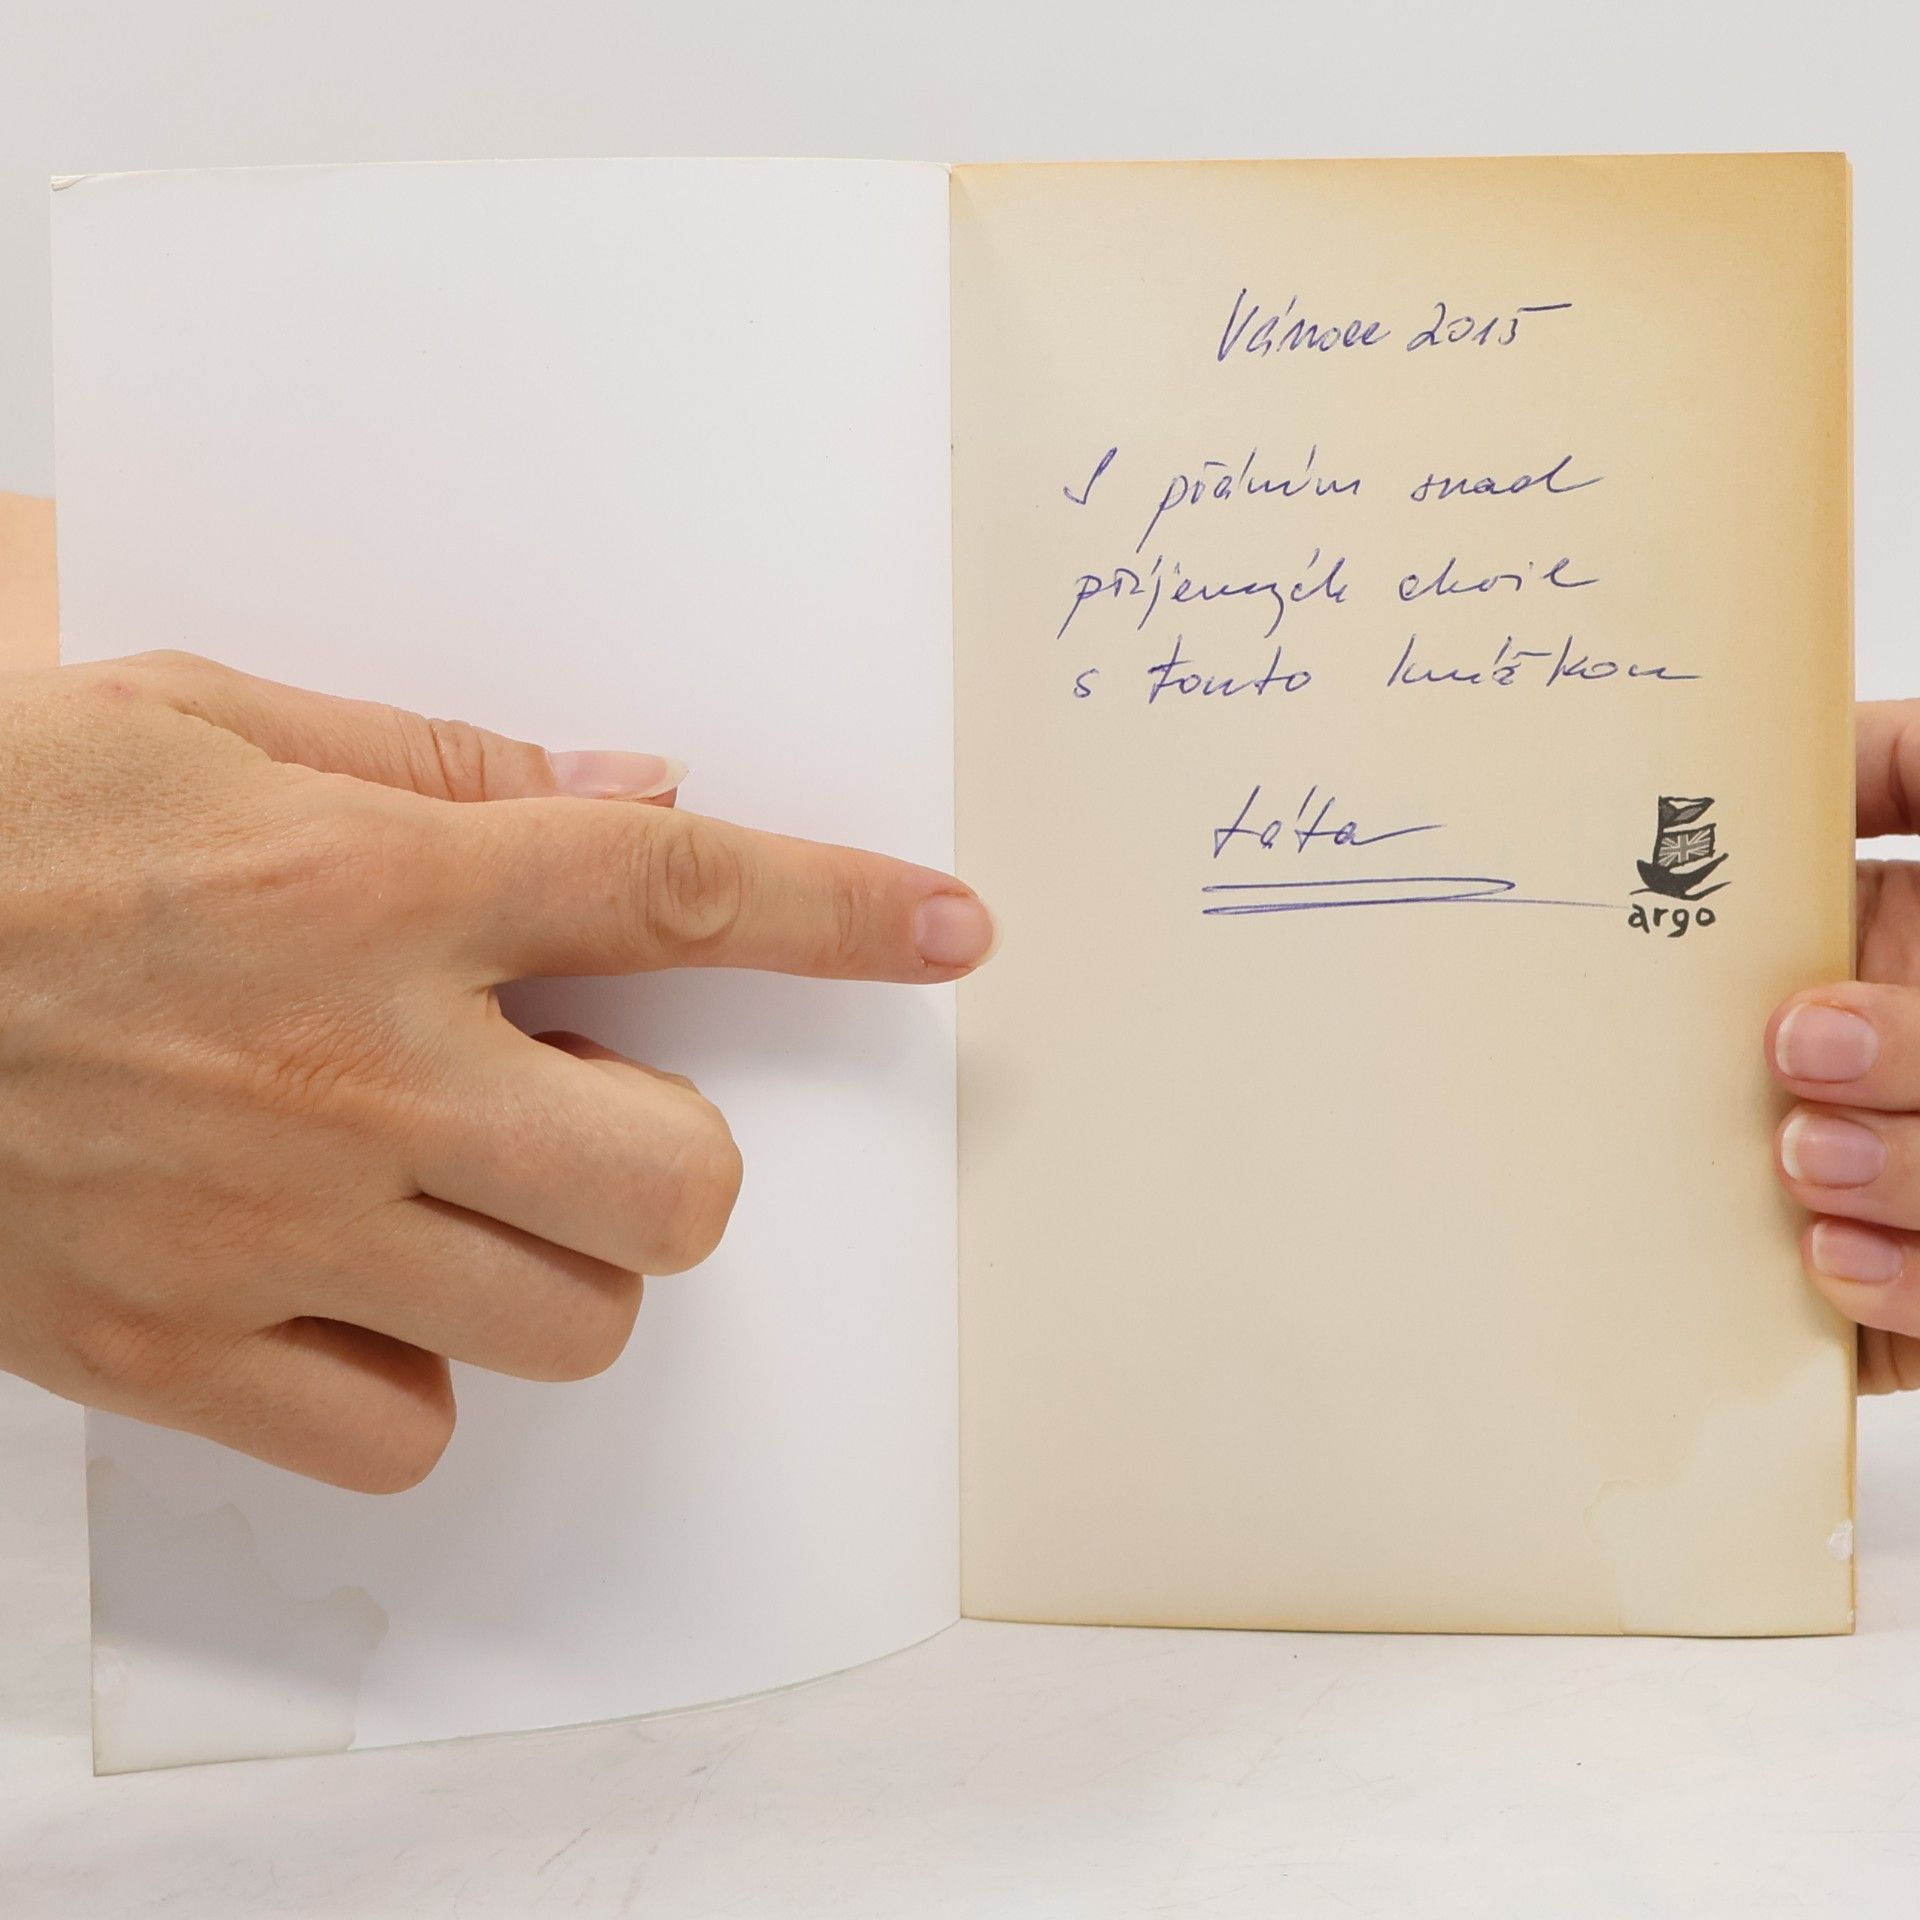 Vánoce 2015
S přáním snad
příjemných chvil
s touto knížkou
táta
argo